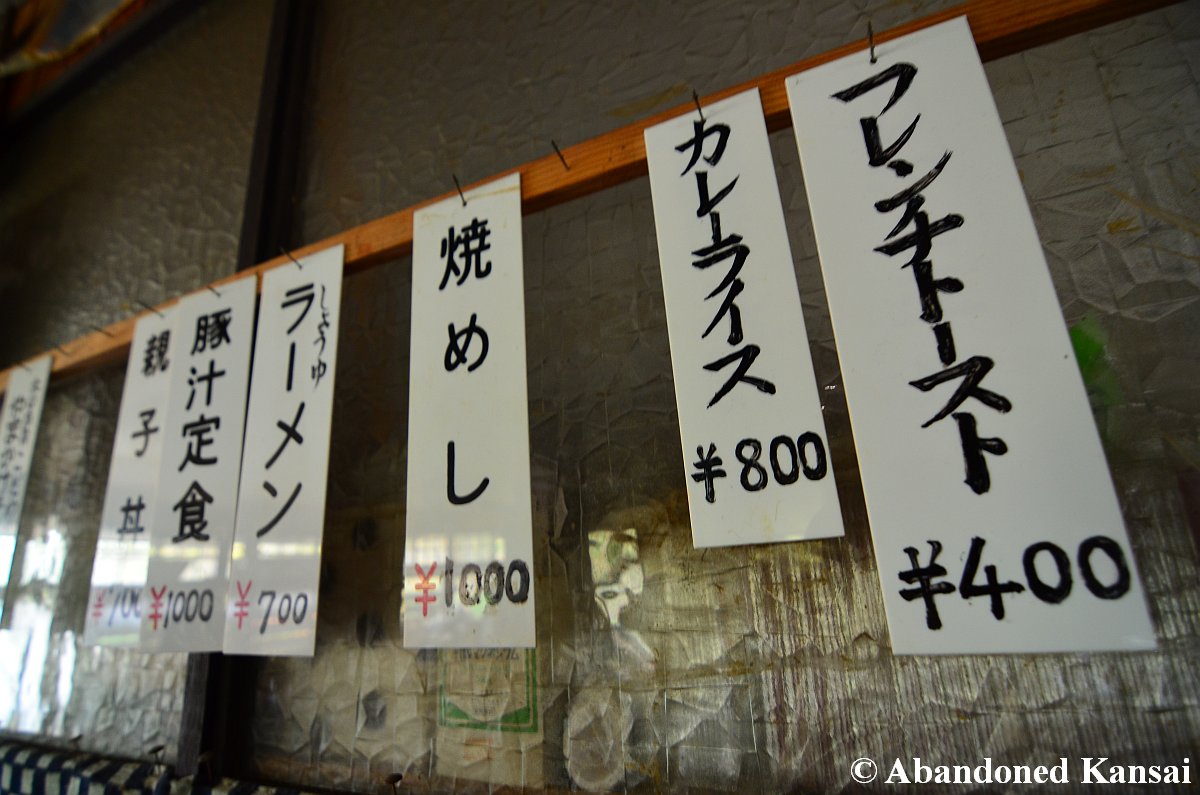 フレンチトースト
¥400
カレーライス
¥800
焼めし
¥1000
しょうゆ
ラーメン
¥700
豚汁定食
¥1000
親子丼
© Abandoned Kansai